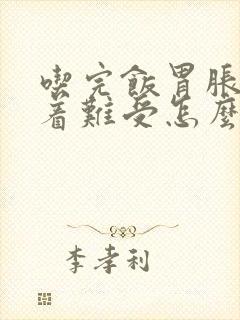 喫完飯胃脹
着難受怎麼
李孝利